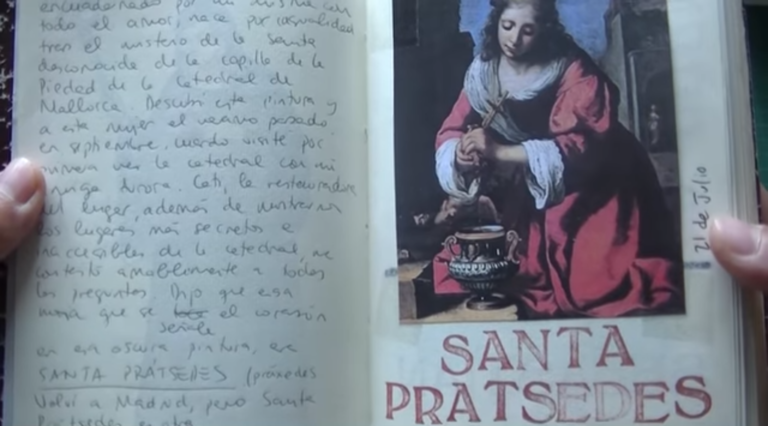 encuadernado por mi misma con
todo el amor, nace por casualidad
tras el misterio de la Santa
desconocida de la capilla de la
Piedad de la catedral de
Mallorca. Descubrí esta pintura y
a esta mujer el verano pasado
en septiembre, cuando visité por
primera vez la catedral con mi
amiga Aurora. Cati, la restauradora
del lugar, además de mostrarnos
los lugares más secretos e
inaccesibles de la catedral, me
contestó amablemente a todas
las preguntas. Dijo que esa
monja que se el corazón
señala
en esa oscura pintura, era
SANTA PRÁTSEDES (práxedes
Volví a Madrid, pero Santa
Pratsedes
SANTA
PRATSEDES
21 de Julio